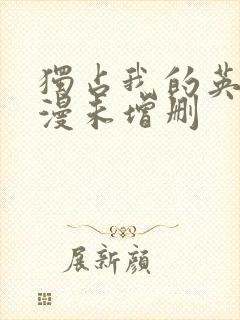 獨占我的英
漫未增删
展新顔